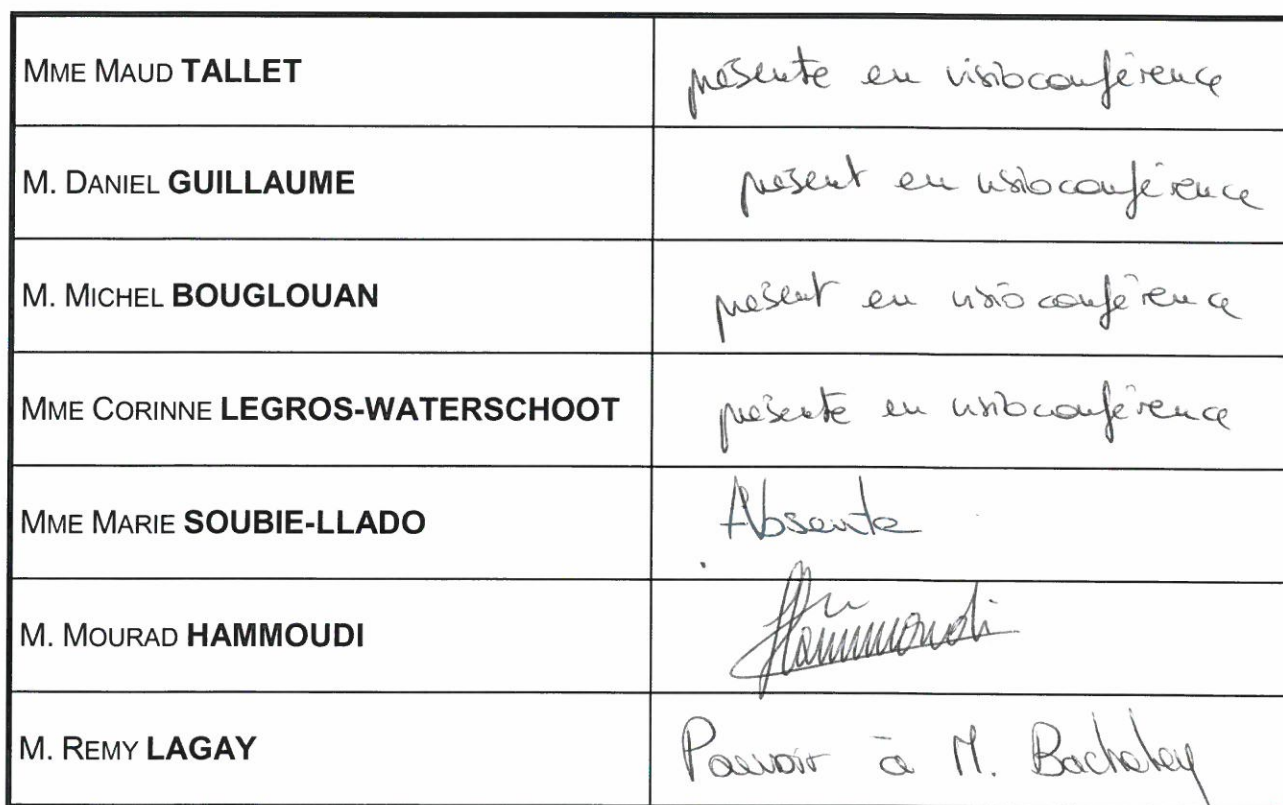 MME MAUD TALLET présente en visioconférence
M. DANIEL GUILLAUME présent en visioconférence
M. MICHEL BOUGLOUAN présent en visioconférence
MME CORINNE LEGROS-WATERSCHOOT présente en visioconférence
MME MARIE SOUBIE-LLADO Absente
M. MOURAD HAMMOUDI Hammoudi
M. REMY LAGAY Pouvoir à M. Bacheley